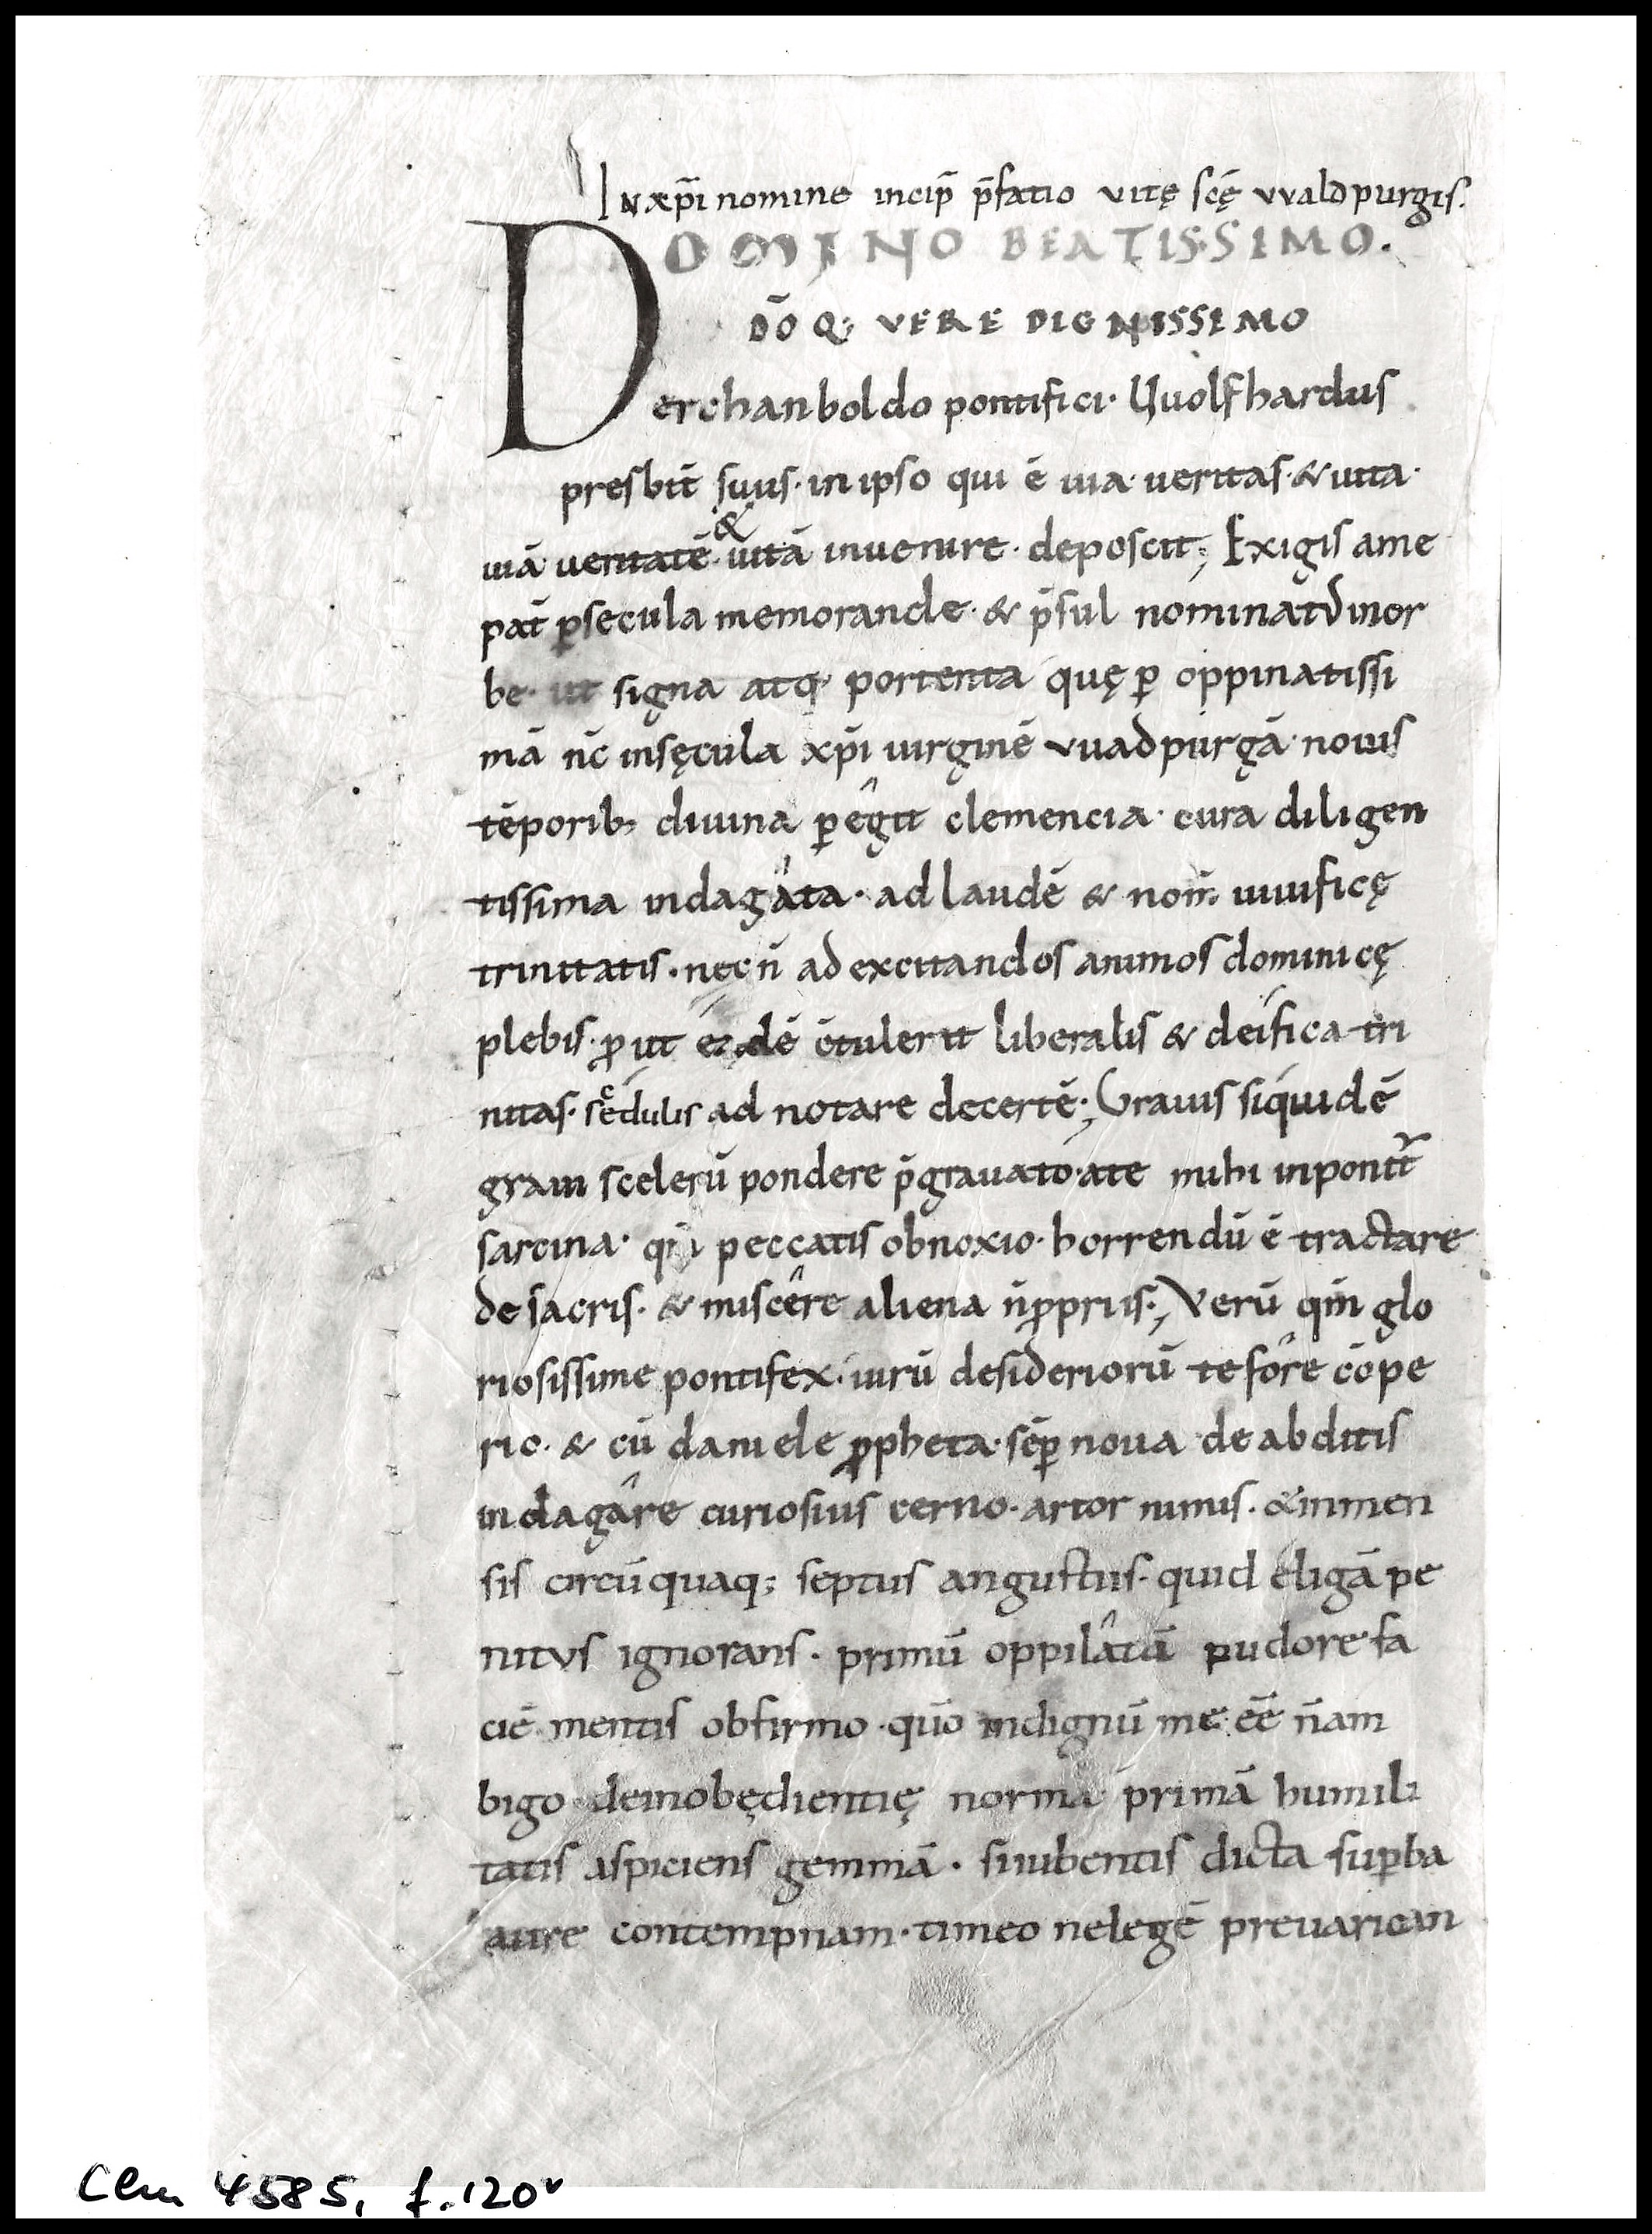 IN xp̄i nomine incip̄ p̄fatio vitę scę̄ vvaldpurgis.
DOMINO BEATISSIMO.
DŌ Q; VERE DIGNISSIMO
erchanboldo pontifici· Uuolfhardus
presbit̄ suus· in ipso qui ē uia· ueritas· & uita·
uiā ueritatē· & uitā inuenire· deposcit; Exigis ame
pat̄ ꝑsecula memorande· & p̄sul nominatVinor
be· ut signa atq· portenta quę ꝑ oppinatissi
mā nc̄ insęcula xp̄i uirginē vuadpurgā· nouis
tēporib; diuina ꝑêgit clemencia· cura diligen
tissima indagâta· ad laudē & noīr̄ uiuificę
trinitatis· necn̄ ad excitandos animos dominicę
plebis· ꝓut dē c̄tulerit liberalis & deífica tri
nitas· sedulis ad notare decertē·; Grauis síquidē
graui scelerū pondere p̄grauato· ate mihi inponit᷑
sarcina· peccatis obnoxio· horrendū ē tractare
de sacris· & miscêre aliena n̄ ꝓpriis·; Verū qm̄ glo
riosissime pontifex· uirū desideriorū te fôre cōpe
rio· & cū daniele ꝓpheta· sēꝑ noua de abditis
indagâre curiosius cerno· artor nimis· & inmen
sis circūquaq; septus angustiis· quid éligā pe
nitvs ignorans· primū oppilâtā pudore fa
ciē mentis obfirmo· quō indignū me eē̄ n̄ am
bigo deinobędientię norma primā humili
tatis aspiciens gemmā· siiubentis dicta suꝑba
aure contempnam· timeo nelegē preuarican
Clm 4585, f. 120v